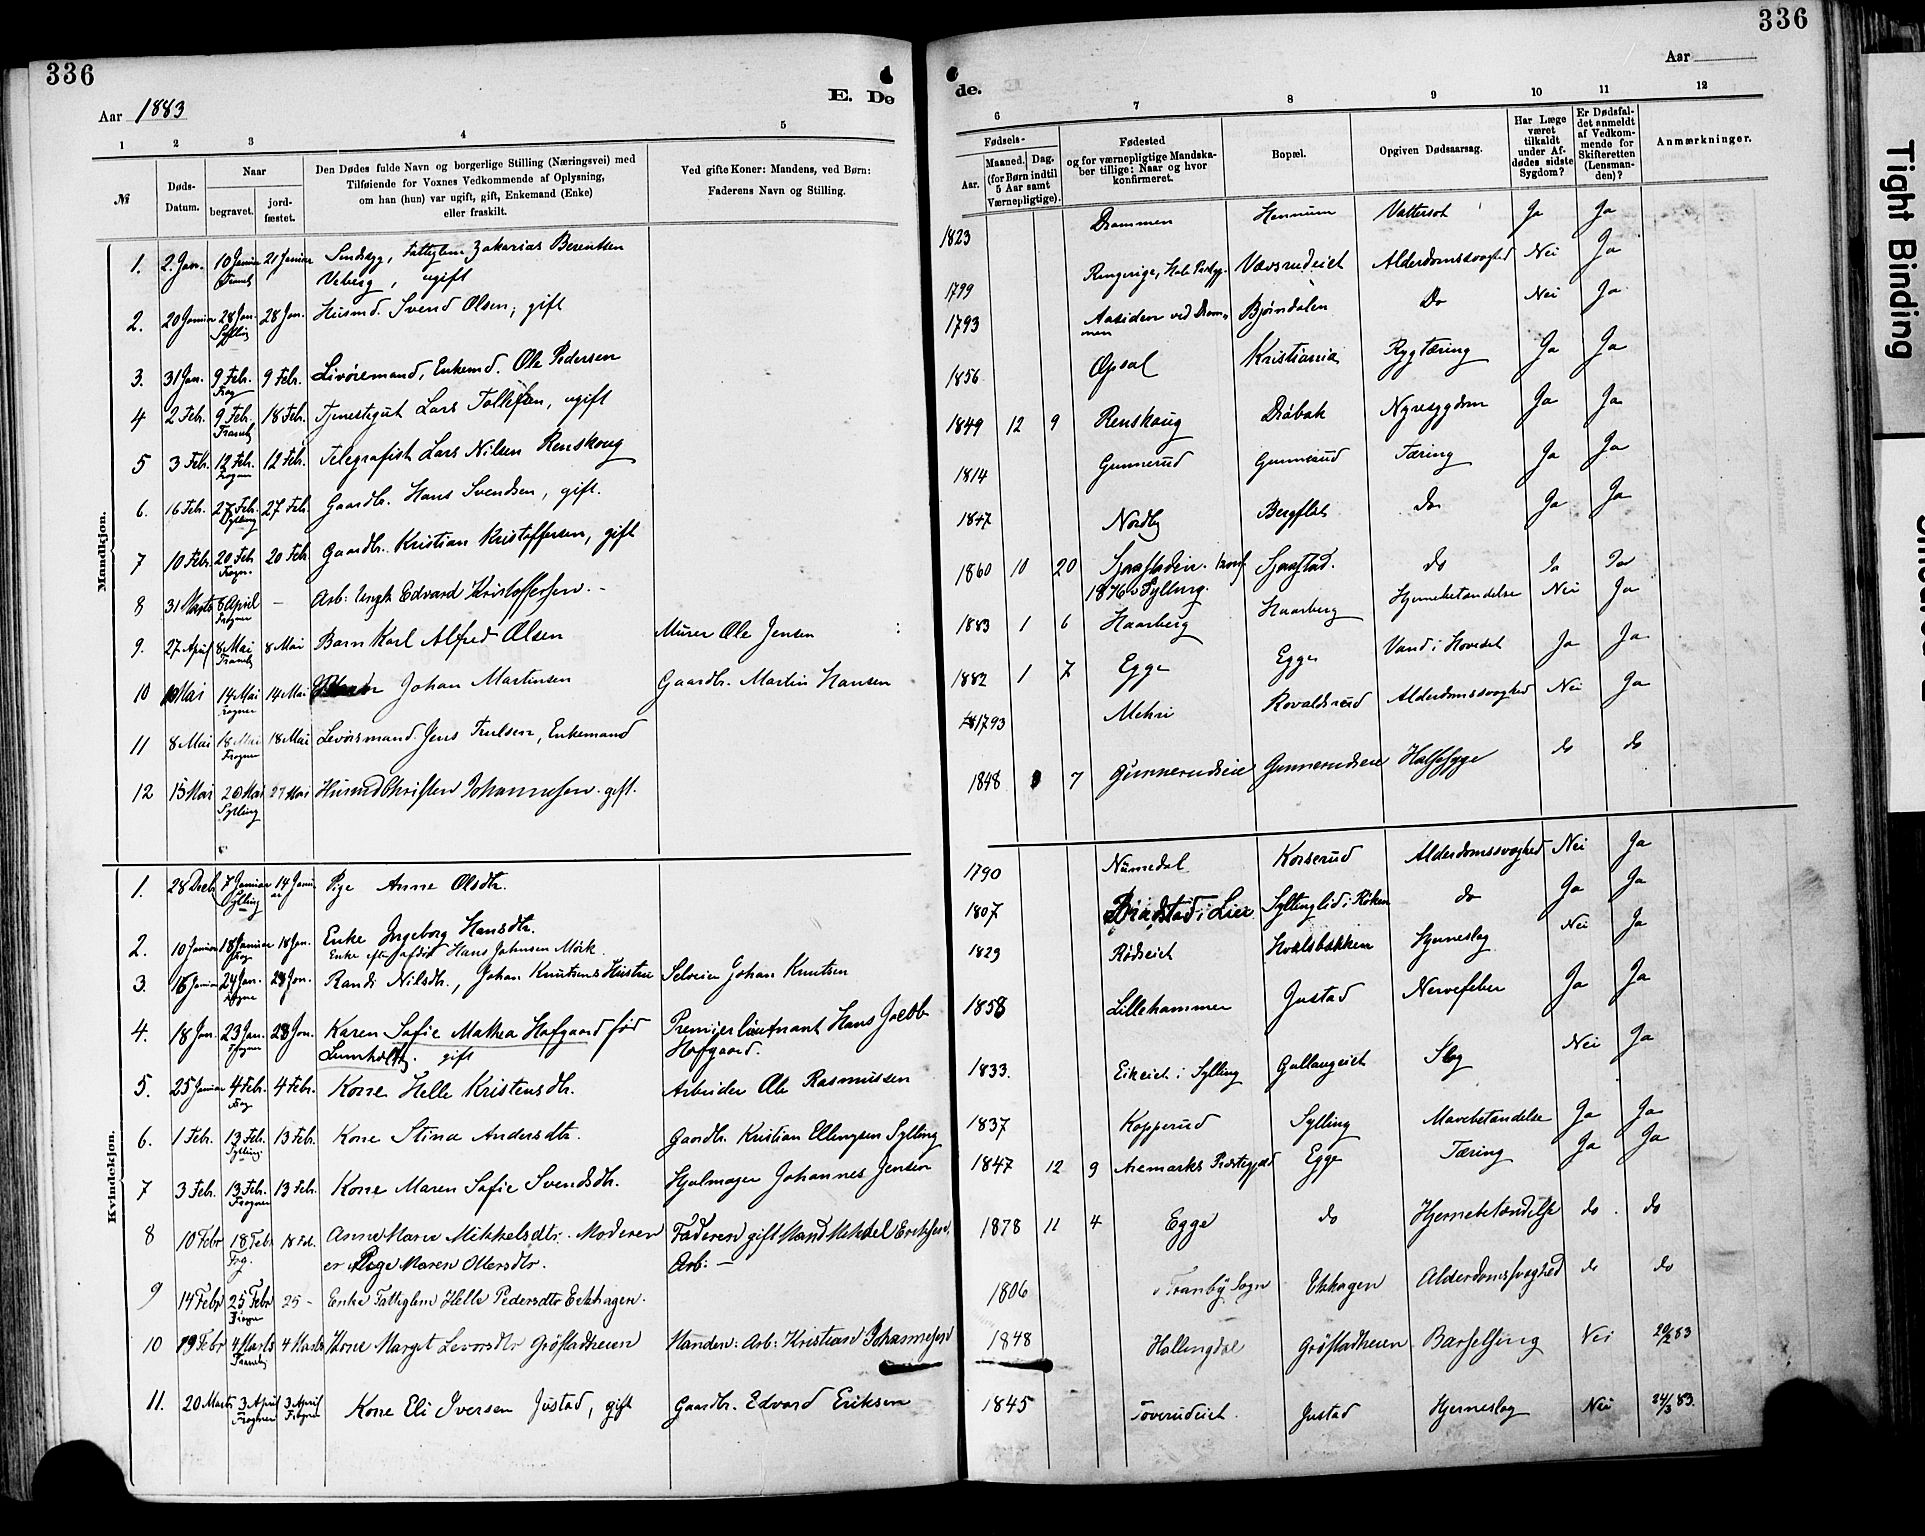 336
Aar 1883
E. De
1 2 3 4 5
№
Døds-
Datum.
Naar
begravet.
jord-
fæstet.
Den Dødes fulde Navn og borgerlige Stilling (Næringsvei) med
Tilføiende for Voxnes Vedkommende af Oplysning,
om han (hun) var ugift, gift, Enkemand (Enke)
eller fraskilt.
Ved gifte Koner: Mandens, ved Børn:
Faderens Navn og Stilling.
Mandkjøn.
1. 2. Jan. 10 Januar 21 Januar Sindssyg, Fattiglem Zakarias Berentsen
Tranb
Veberg, ugift
2. 20 Januar 28 Jan. 28 Jan. Husmd. Svend Olsen, gift
Sylling
3. 31 Jan. 9 Febr. 9 Febr. Livøremand, Enkemd. Ole Pedersen
Frog
4 2 Febr. 9 Febr. 18 Febr. Tjenestegut Lars Tollefsen, ugift
Tranb
5 3 Feb. 12 Feb. 12 Feb. Telegrafist Lars Nilsen Renskoug
Frogner
6. 16 Feb. 27 Feb. 27 Feb. Gaardbr. Hans Svendsen, gift.
Sylling
7 10 Febr. 20 Feb 20 Feb Gaardbr. Kristian Kristoffersen, gift
Frogn.
8 31 Marts 8 April – Arb: Ungk Edvard Kristoffersen. –
Frogner
9. 27 April 8 Mai 8 Mai Barn Karl Alfred Olsen Murer Ole Jensen
Tranb
10 10 Mai 14 Mai 14 Mai Johan Martinsen Gaardbr. Martin Hansen
Frogner
11 8 Mai 18 Mai 18 Mai Levørsmand Jens Trulsen, Enkemand
Frogner
12 15 Mai 20 Mai 27 Mai Husmd Christen Johannesen. gift.
Sylling
Kvindekjøn.
1. 28 Decb 7 Januar 14 Janu Pige Anne Olsdtr.
Sylling ar
2. 10 Januar 18 Januar 18 Jan. Enke Ingeborg Hansdtr.
Frog Enke efter Hans Johnsen Mørk.
3. 16 Januar 24 Jan. 28 Jan. Randi Nilsdtr., Johan Knutsens Hustru Selveier Johan Knutsen
Frogne
4. 18 Jan. 23 Jan. 28 Jan. Karen Sofie Mathea Hofgaard fød Premierløitnant Hans Jacob
Frogner
Lumholtz. gift Hofgaard.
5. 25 Januar 4 Febr. 4 Febr. Kone Helle Kristensdtr. Arbeider Ole Rasmussen
Frog
6. 1 Feb. 13 Feb. 13 Feb. Kone Stina Andersdtr. Gaardbr. Kristian Ellingsen Sylling
Sylling.
7 3 Feb. 13 Feb. 13 Feb. Kone Maren Sofie Svendsdtr. Hjulmager Johannes Jensen
Frogner
8 10 Febr 18 Febr 18 Feb. Anna Marie Mikkelsdtr. Moderen Faderen gift Mand Mikkel Eriksen,
Frg. er Pige Maren Olersdtr. Arb: –
9 14 Febr 25 Febr 25 – Enke Fattiglem Helle Pedersdtr Eekhagen.
Frogner
10 19 Febr 4 Marts 4 Marts Kone Marget Levorsdtr Grøstadheien Manden: Arb: Kristian Johannesen
Tranby
11. 20 Marts 3 April 3 April Kone Eli Iversen Justad, gift Gaardbr. Edvard Eriksen
Frogner Frogne
336
Aar
de.
6 7 8 9 10 11 12
Fødsels-
Aar.
Maaned. Dag.
(for Børn indtil
5 Aar samt
Værnepligtige).
Fødested
og for værnepligtige Mandska-
ber tillige: Naar og hvor
konfirmeret.
Bopæl.
Opgiven Dødsaarsag.
Har Læge
været
tilkaldt
under Af-
dødes sidste
Sygdom?
Er Dødsfal-
det anmeldt
af Vedkom-
mende for
Skifteretten
(Lensman-
den)?
Anmærkninger.
1823 Drammen Hennum Vattersot Ja Ja
1799 Ringerige, Hole Vævsrudeiet Alderdomssvaghed Nei Ja
1793 Aasiden ved Dram- Bjørndalen Do Nei Ja
men
1856 Opsal Kristiania Rygtæring Ja Ja
1849 12 9 Renskoug Drøbak Nyresygdom Ja Ja
1814 Gunnerud Gunnerud Tæring Ja Ja
1847 Nordby Bergflat do Ja Ja
1860 10 20 Sjaastaden. konf Sjaastad. do Ja Ja
1876 Sylling.
1883 1 6 Haarberg Haarberg Hjernebetændelse Nei Ja
1882 1 7 Egge Egge Vand i Hovedet Ja Ja
1793 Mehri Rovaldsrud Alderdomssvaghed Nei Ja
1848 7 Gunnerudseie Gunnerudseie Halssyge do do
1790 Numedal Korserud Alderdomssvaghed Nei Ja
1807 i Lier Syllinglid i Røken do Ja Ja
1829 Rødseiet Hvalsbakken Hjerneslag Nei Ja
1858 Lillehammer Justad Nervefeber Ja Ja
1833 Eikeiet i Sylling Gullaugeiet Slag Nei Ja
1837 Kopperud Sylling Mavebetændelse Ja Ja
1847 12 9 Aremarks Præstegjæld Egge Tæring Ja Ja
1878 11 4 Egge do Hjernebetændelse do. do
1806 Tranby Sogn Ekhagen Alderdomssvaghed do do
1848 Hallingdal Grøstadheien Barselseng Nei 20/2 83
1845 Toverudeiet. Justad Hjerneslag Nei 24/3 83.
Tight Binding